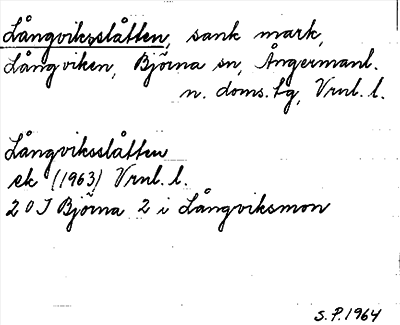 Långviksslåtten, sank mark,
Långviken, Björna sn, Ångermanl.
n. doms.tg, Vrnl. l.
Långviksslåtten
ek (1963) Vrnl. l.
20 J Björna 2 i Långviksmon
S.P. 1964